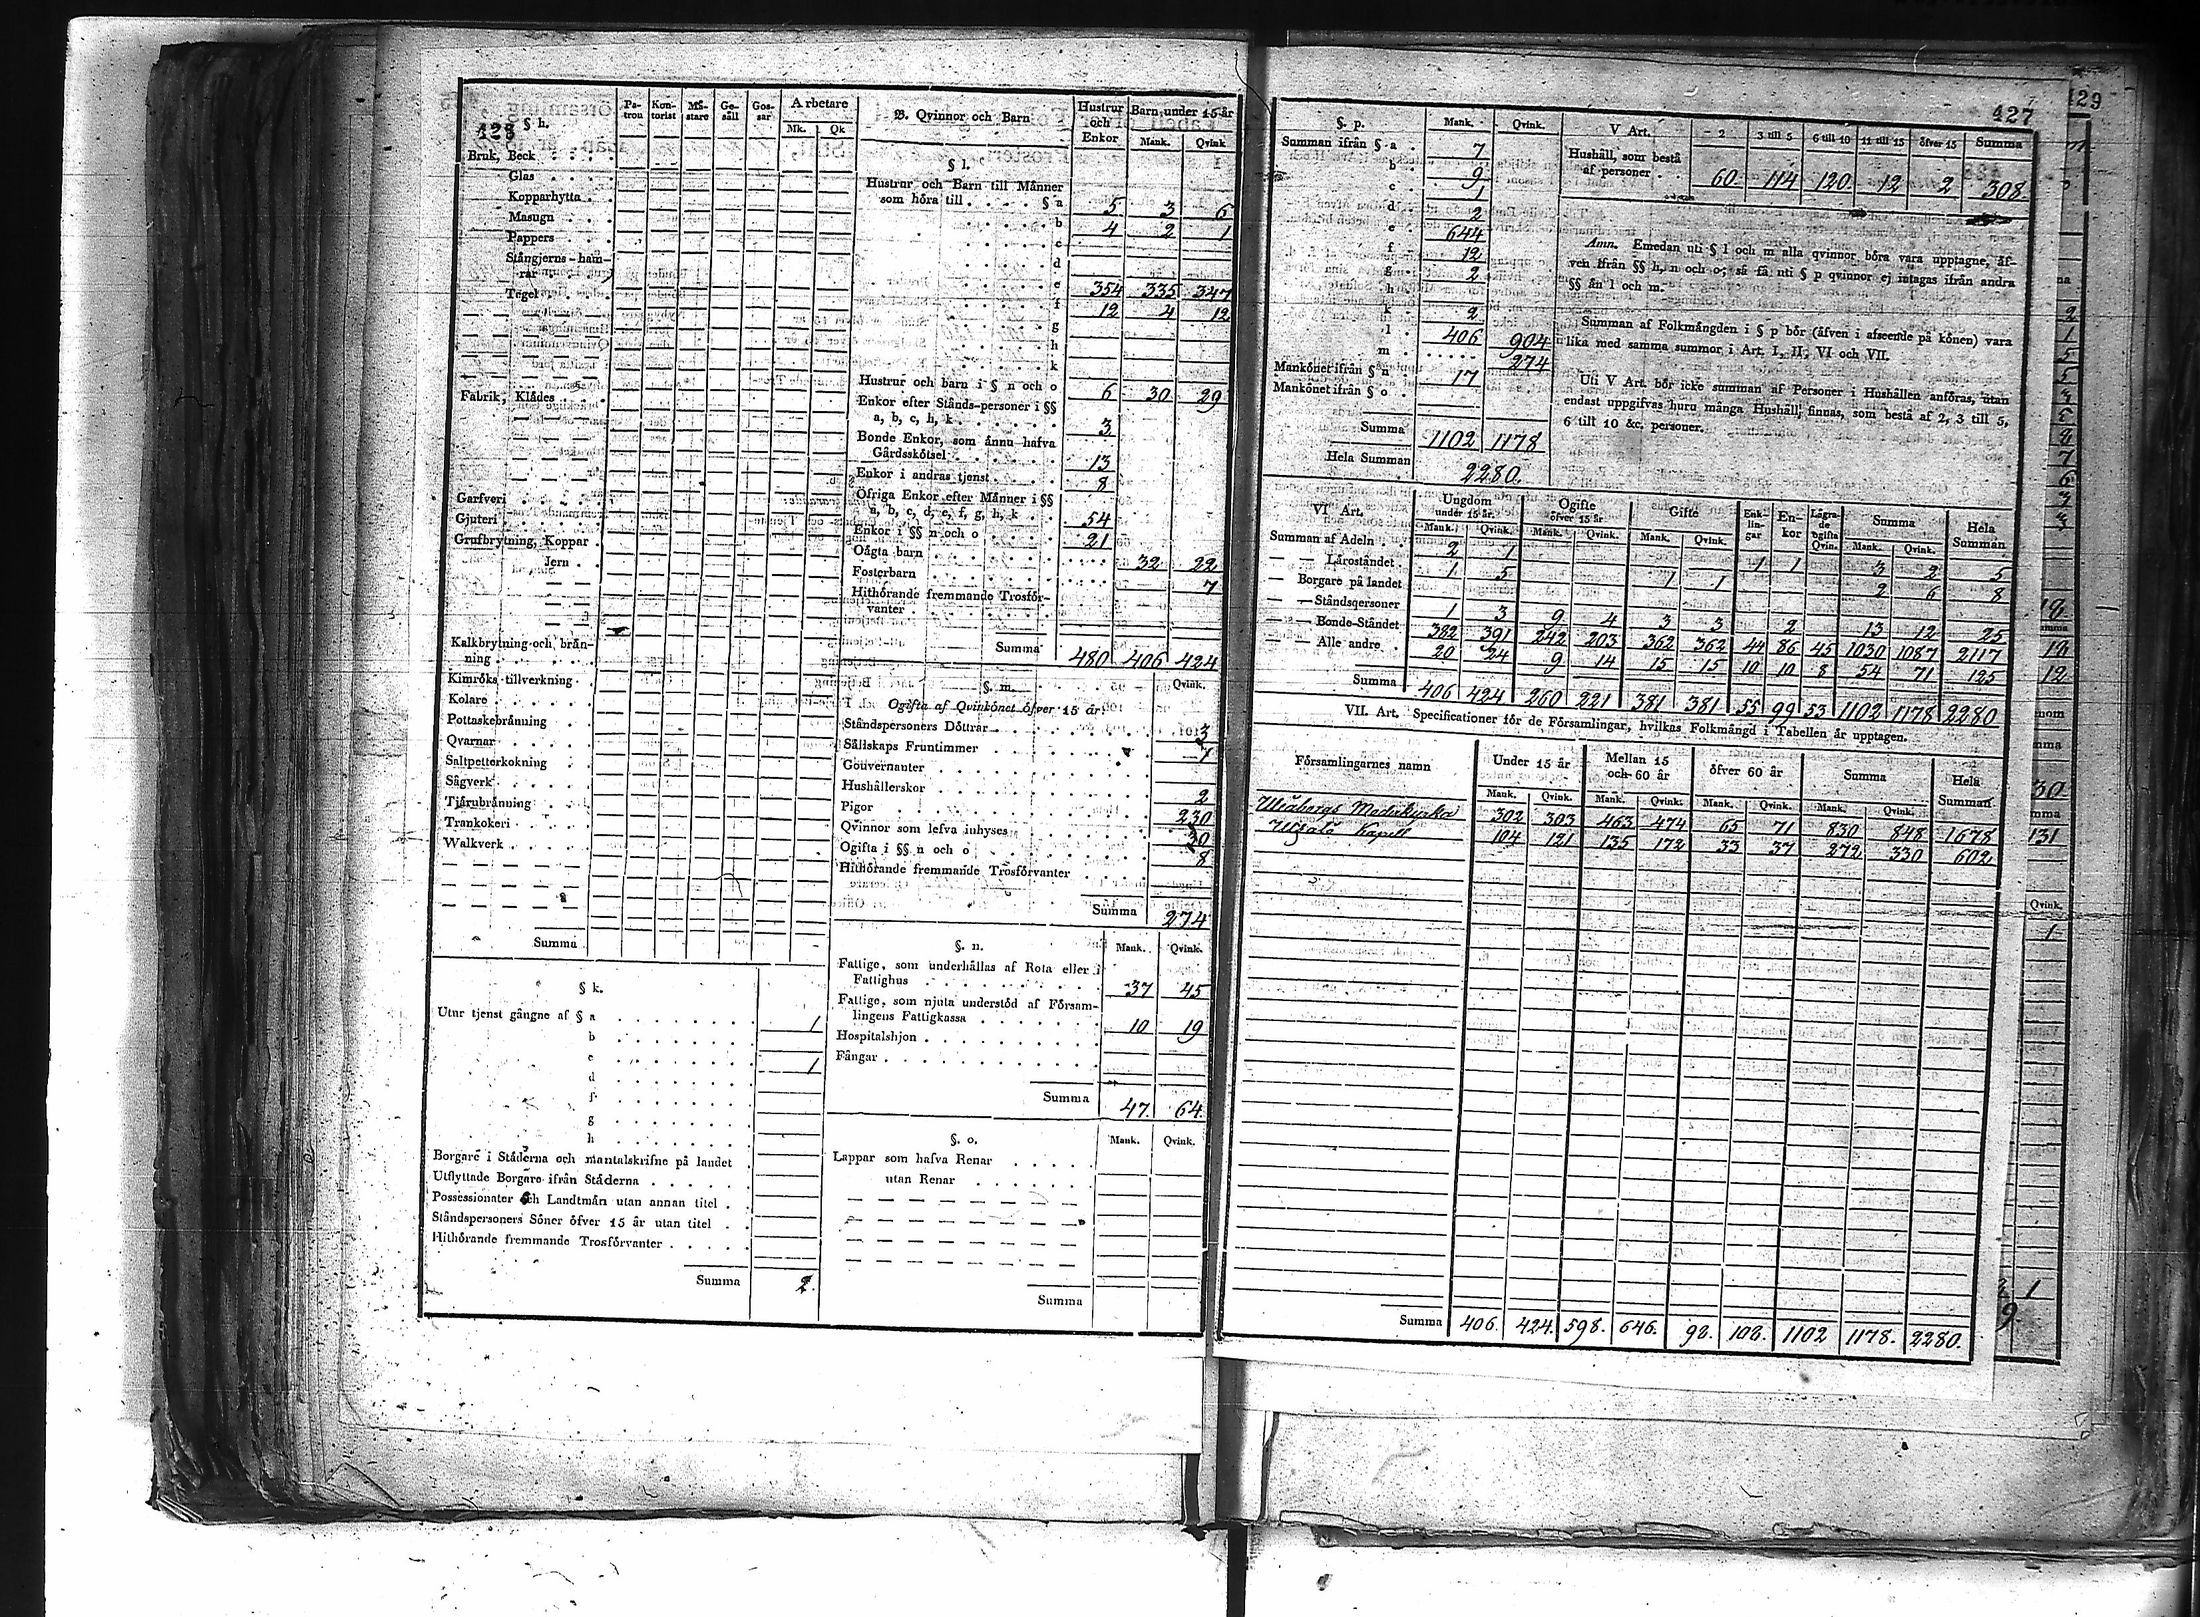 128
§ h.
Pa-tron Kon-torist Mä-stare Ge-säll Gos-sar Arbetare
Mk. Qk
Bruk, Beck
Glas
Kopparhytta
Masugn
Pappers
Stångjerns-ham-
rar
Tegel
Fabrik, Klådes
Garfveri
Gjuteri
Grufbrytning, Koppar
Jern
Kalkbrytning och brån-
ning
Kimröks tillverkning
Kolare
Pottaskebrånning
Qvarnar
Saltpetterkokning
Sågverk
Tjärubrånning
Trankokeri
Walkverk
Summa
§ k.
Utur tjenst gångne af § a 1
b
c 1
d
f
g
h
Borgare i Städerna och mantalskrifne på landet
Utflyttade Borgare ifrån Städerna
Possessionater och Landtmän utan annan titel
Ståndspersoners Söner öfver 15 år utan titel
Hithörande fremmande Trosförvanter
Summa 2.
B. Qvinnor och Barn
Hustrur och Enkor Barn under 15 år
Mank. Qvink
§ l.
Hustrur och Barn till Männer
som höra till § a 5 3 6
b 4 2 1
c
d
e 354 335 347
f 12 4 12
g
h
k
Hustrur och barn i § n och o 6 30 29
Enkor efter Stånds-personer i §§
a, b, c, h, k 3
Bonde Enkor, som ännu hafva
Gårdsskötsel 13
Enkor i andras tjenst 8
Öfriga Enkor efter Männer i §§
a, b, c, d, e, f, g, h, k 54
Enkor i §§ n och o 21
Oägta barn 32 22
Fosterbarn 7
Hithörande fremmande Trosför-
vanter
Summa 480 406 424
§. m. Qvink.
Ogifta af Qvinkönet öfver 15 år.
Ståndspersoners Döttrar 3
Sällskaps Fruntimmer 1
Gouvernanter
Hushållerskor 2
Pigor 230
Qvinnor som lefva inhyses 30
Ogifta i §§ n och o 8
Hithörande fremmande Trosförvanter
Summa 274
§. n. Mank. Qvink.
Fattige, som underhållas af Rota eller i
Fattighus 37 45
Fattige, som njuta understöd af Försam-
lingens Fattigkassa 10 19
Hospitalshjon
Fångar
Summa 47. 64.
§. o. Mank. Qvink.
Lappar som hafva Renar
utan Renar
Summa
127
§. p. Mank. Qvink.
Summan ifrån § a 7
b 9
c 1
d 2
e 644
f 12
g 2
h
k 2
l 406 904
m 274
Mankönet ifrån § n 17
Mankönet ifrån § o
Summa 1102 1178
Hela Summan 2280.
V Art. - 2 3 till 5 6 till 10 11 till 15 öfver 15 Summa
Hushåll, som bestå
af personer 60 114 120 12 2 308.
Anm. Emedan uti § l och m alla qvinnor böra vara upptagne, äf-
ven ifrån §§ h, n och o; så få uti § p qvinnor ej intagas ifrån andra
§§ än l och m.
Summan af Folkmängden i § p bör (äfven i afseende på könen) vara
lika med samma summor i Art. I, II, VI och VII.
Uti V Art. bör icke summan af Personer i Hushållen anföras, utan
endast uppgifvas huru många Hushåll finnas, som bestå af 2, 3 till 5,
6 till 10 &c. personer.
VI Art. Ungdom under 15 år. Ogifte öfver 15 år Gifte Enk-lin-gar En-kor Lägra-de ogifta Qvin. Summa Hela Summan
Mank. Qvink. Mank. Qvink. Mank. Qvink. Mank. Qvink.
Summan af Adeln 2 1 1 1 3 2 5
— Låroståndet 1 5 1 1 2 6 8
— Borgare på landet
— Ståndspersoner 1 3 9 4 3 3 2 13 12 25
— Bonde-Ståndet 382 391 242 203 362 362 44 86 45 1030 1087 2117
— Alle andre 20 24 9 14 15 15 10 10 8 54 71 125
Summa 406 424 260 221 381 381 55 99 53 1102 1178 2280
VII. Art. Specificationer för de Församlingar, hvilkas Folkmängd i Tabellen är upptagen.
Församlingarnes namn Under 15 år Mellan 15 och 60 år öfver 60 år Summa Hela Summan
Mank. Qvink. Mank. Qvink. Mank. Qvink. Mank. Qvink.
Uleåborgs Moderkyrka 302 303 463 474 65 71 830 848 1678
Kapell 104 121 135 172 33 37 272 330 602
Summa 406. 424. 598. 646. 98. 108. 1102 1178. 2280.
129